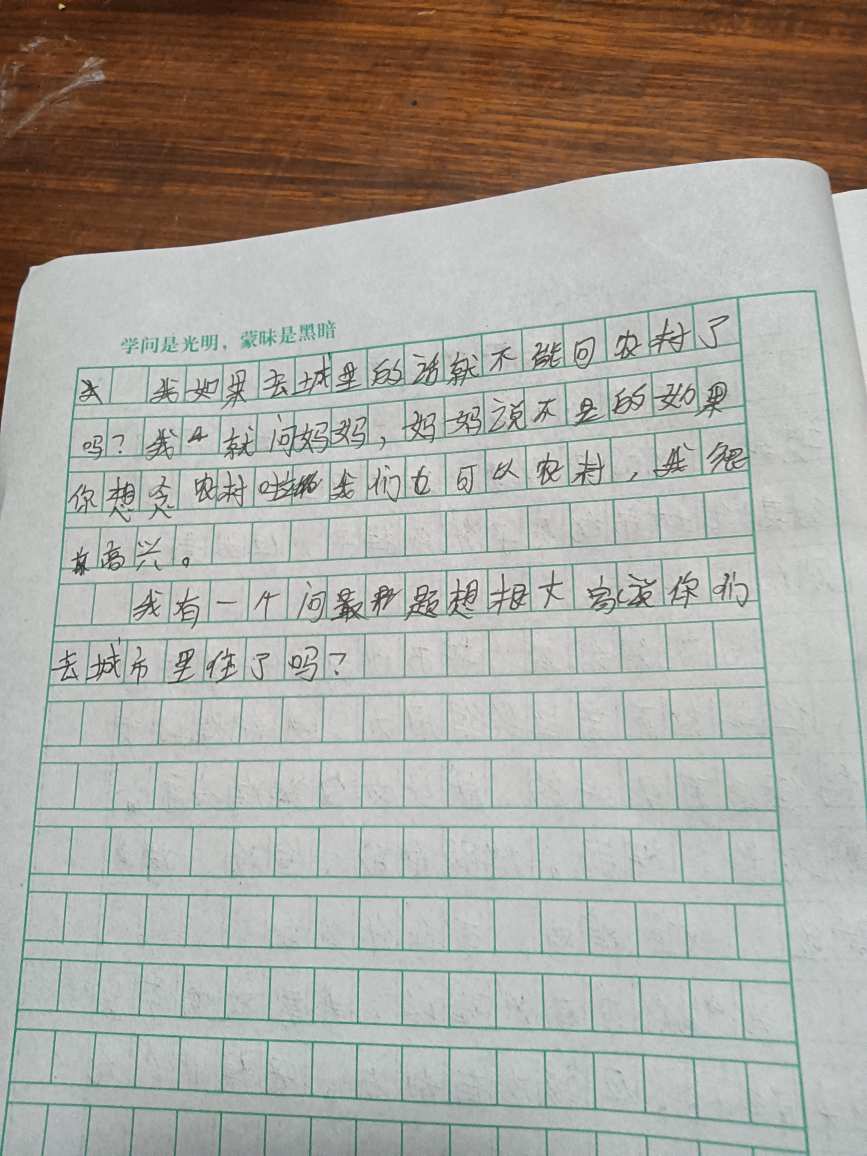 学问是光明，蒙昧是黑暗
我如果去城里的话就不能回农村了
吗？我就问妈妈，妈妈说不是的如果
你想念农村我们也可以农村，我很
高兴。
我有一个问题想报大家说你们
去城市里住了吗？